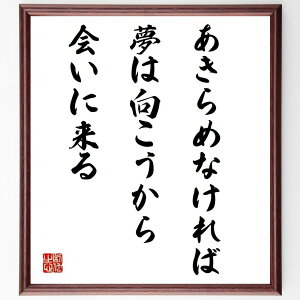 あきらめなければ
夢は向こうから
会いに来る